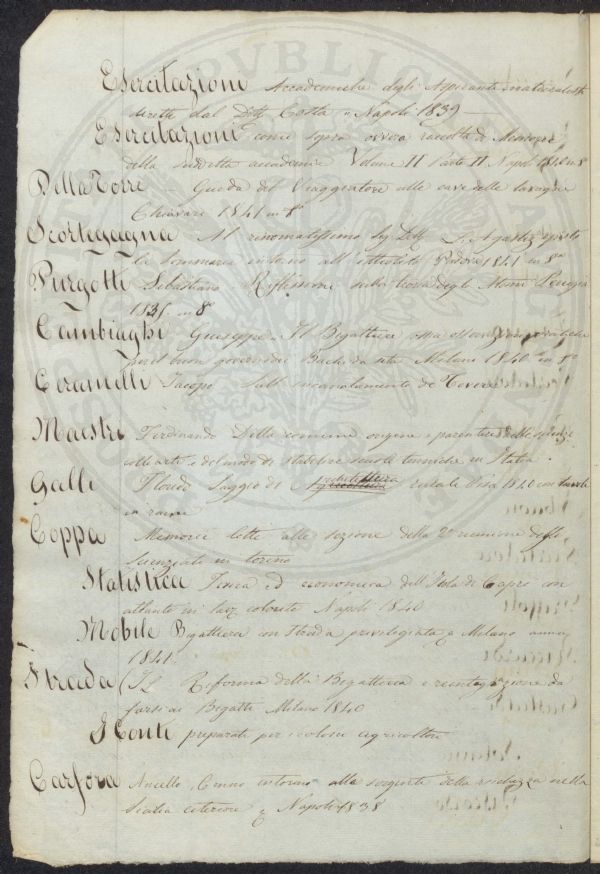 Esercitazioni Accademiche degli Aspiranti naturalisti
dirette dal Dott. Costa Napoli 1839
Esercitazioni come sopra ovvero raccolta di Memorie
della suddetta accademia Volume II Parte II Napoli 1840 in 8
Della Torre Guida del Viaggiatore alle cave delle lavagne
Chiavari 1841 in 8°
Scortegagna Al rinomatissimo Sig. Dott. L. Agassiz
la intorno all' Padova 1841 in 8°
Purgotti Sebastiano Riflessioni sulla teoria degli Atomi Perugia
in 8°
Cambiaghi Giuseppe Il Bigattiere ossia
pel buon governo dei Bachi da seta Milano 1840 in 8°
Ceramelli Jacopo Sull' incanalamento de Tevere
Maestri Ferdinando Della comune origine e parentela delle scienze
colle arti e del modo di stabilire scuole tecniche in Italia
Galli Flondo Saggio di architettura rurale Pisa 1840 con tavole
in rame
Coppa Memorie lette alla sezione della 2ª riunione degli
Scienziati in torino
Statistica fisica ed economica dell'Isola di Capri con
atlante in colorite Napoli 1840
Mobile Bigattiera con Strada privilegiata Milano
1841
Strada (J L Riforma della Bigattiera e da
farsi ai Bigatti Milano 1840
I Conti preparati per i coloni agricoltori
Carfora Aniello Cenno intorno alle sorgenti della richezza nella
Sicilia citeriore Napoli 1838